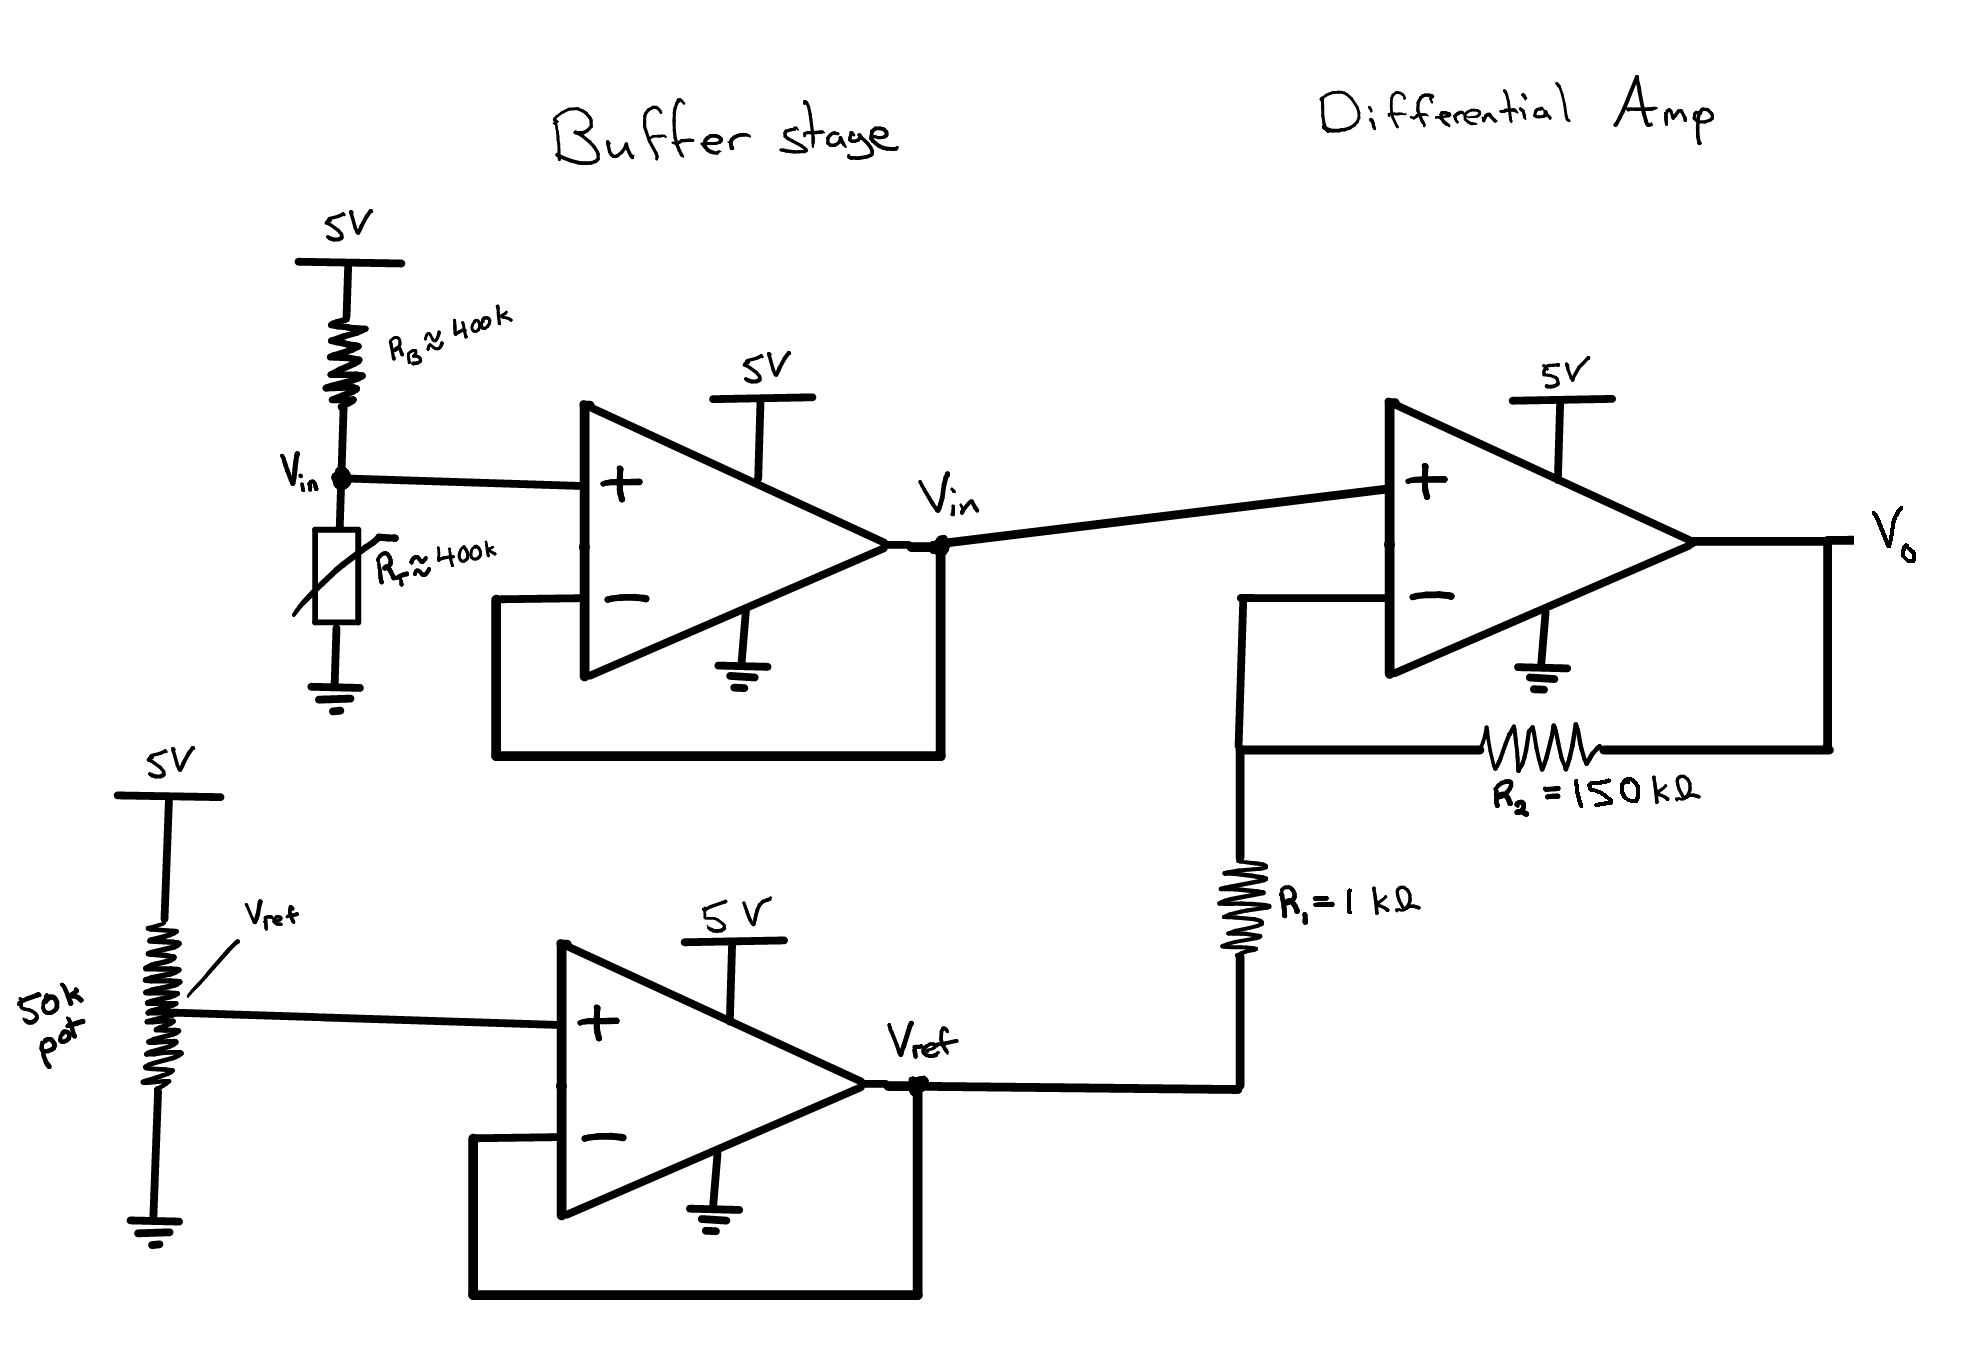 Buffer stage
Differential Amp
5V
R_B ≈ 400k
V_in
R_T ≈ 400k
5V
+
−
V_in
5V
+
−
V_o
R_2 = 150 kΩ
R_1 = 1 kΩ
5V
V_ref
50k
pot
5V
+
−
V_ref